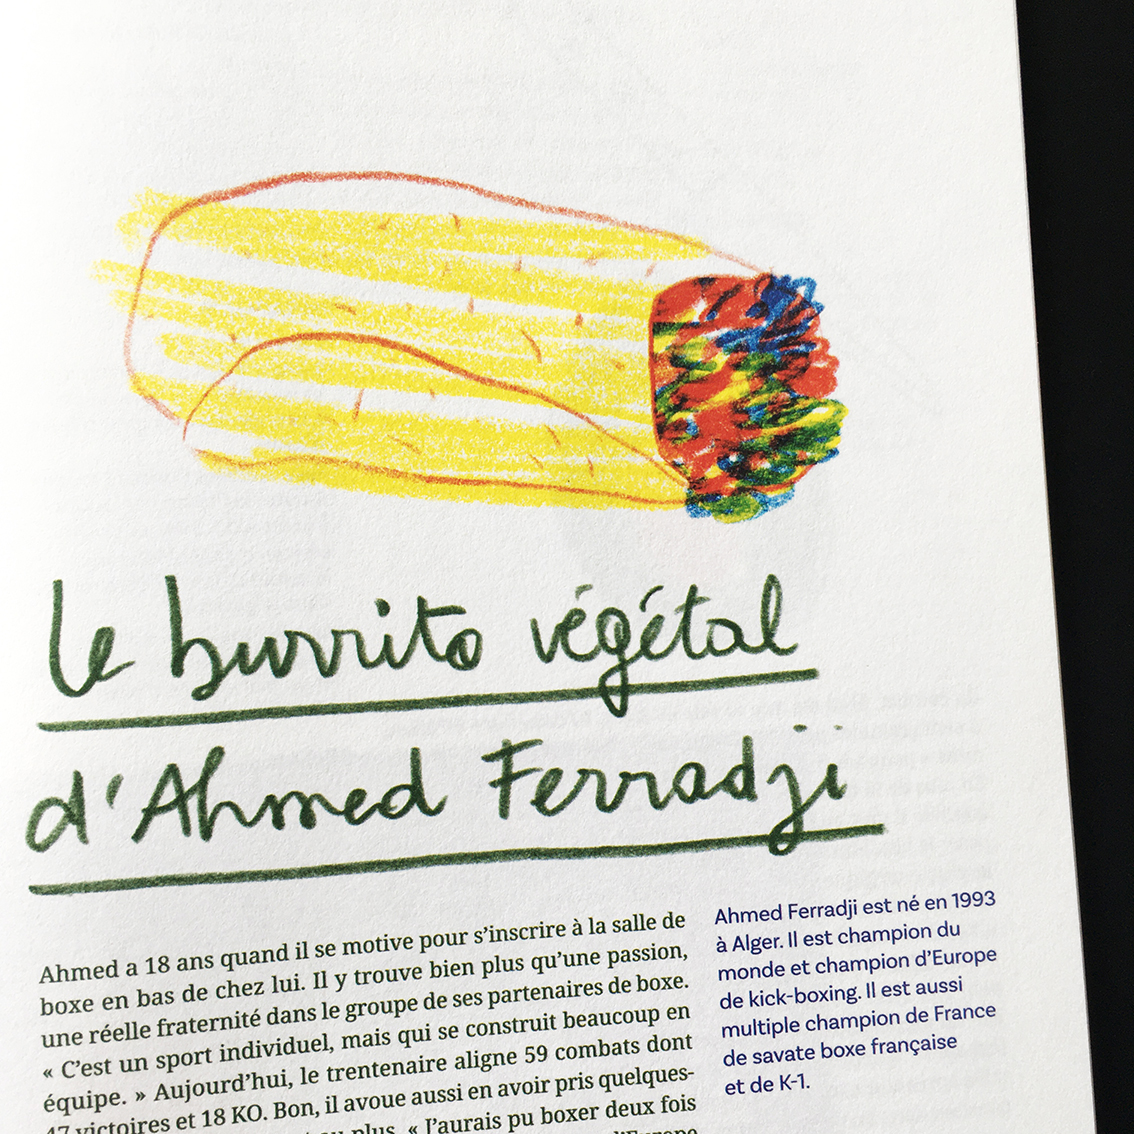 le burrito végétal
d'Ahmed Ferradji
Ahmed a 18 ans quand il se motive pour s'inscrire à la salle de
boxe en bas de chez lui. Il y trouve bien plus qu'une passion,
une réelle fraternité dans le groupe de ses partenaires de boxe.
« C'est un sport individuel, mais qui se construit beaucoup en
équipe. » Aujourd'hui, le trentenaire aligne 59 combats dont
47 victoires et 18 KO. Bon, il avoue aussi en avoir pris quelques-
plus. « J'aurais pu boxer deux fois
d'Europe
Ahmed Ferradji est né en 1993
à Alger. Il est champion du
monde et champion d'Europe
de kick-boxing. Il est aussi
multiple champion de France
de savate boxe française
et de K-1.